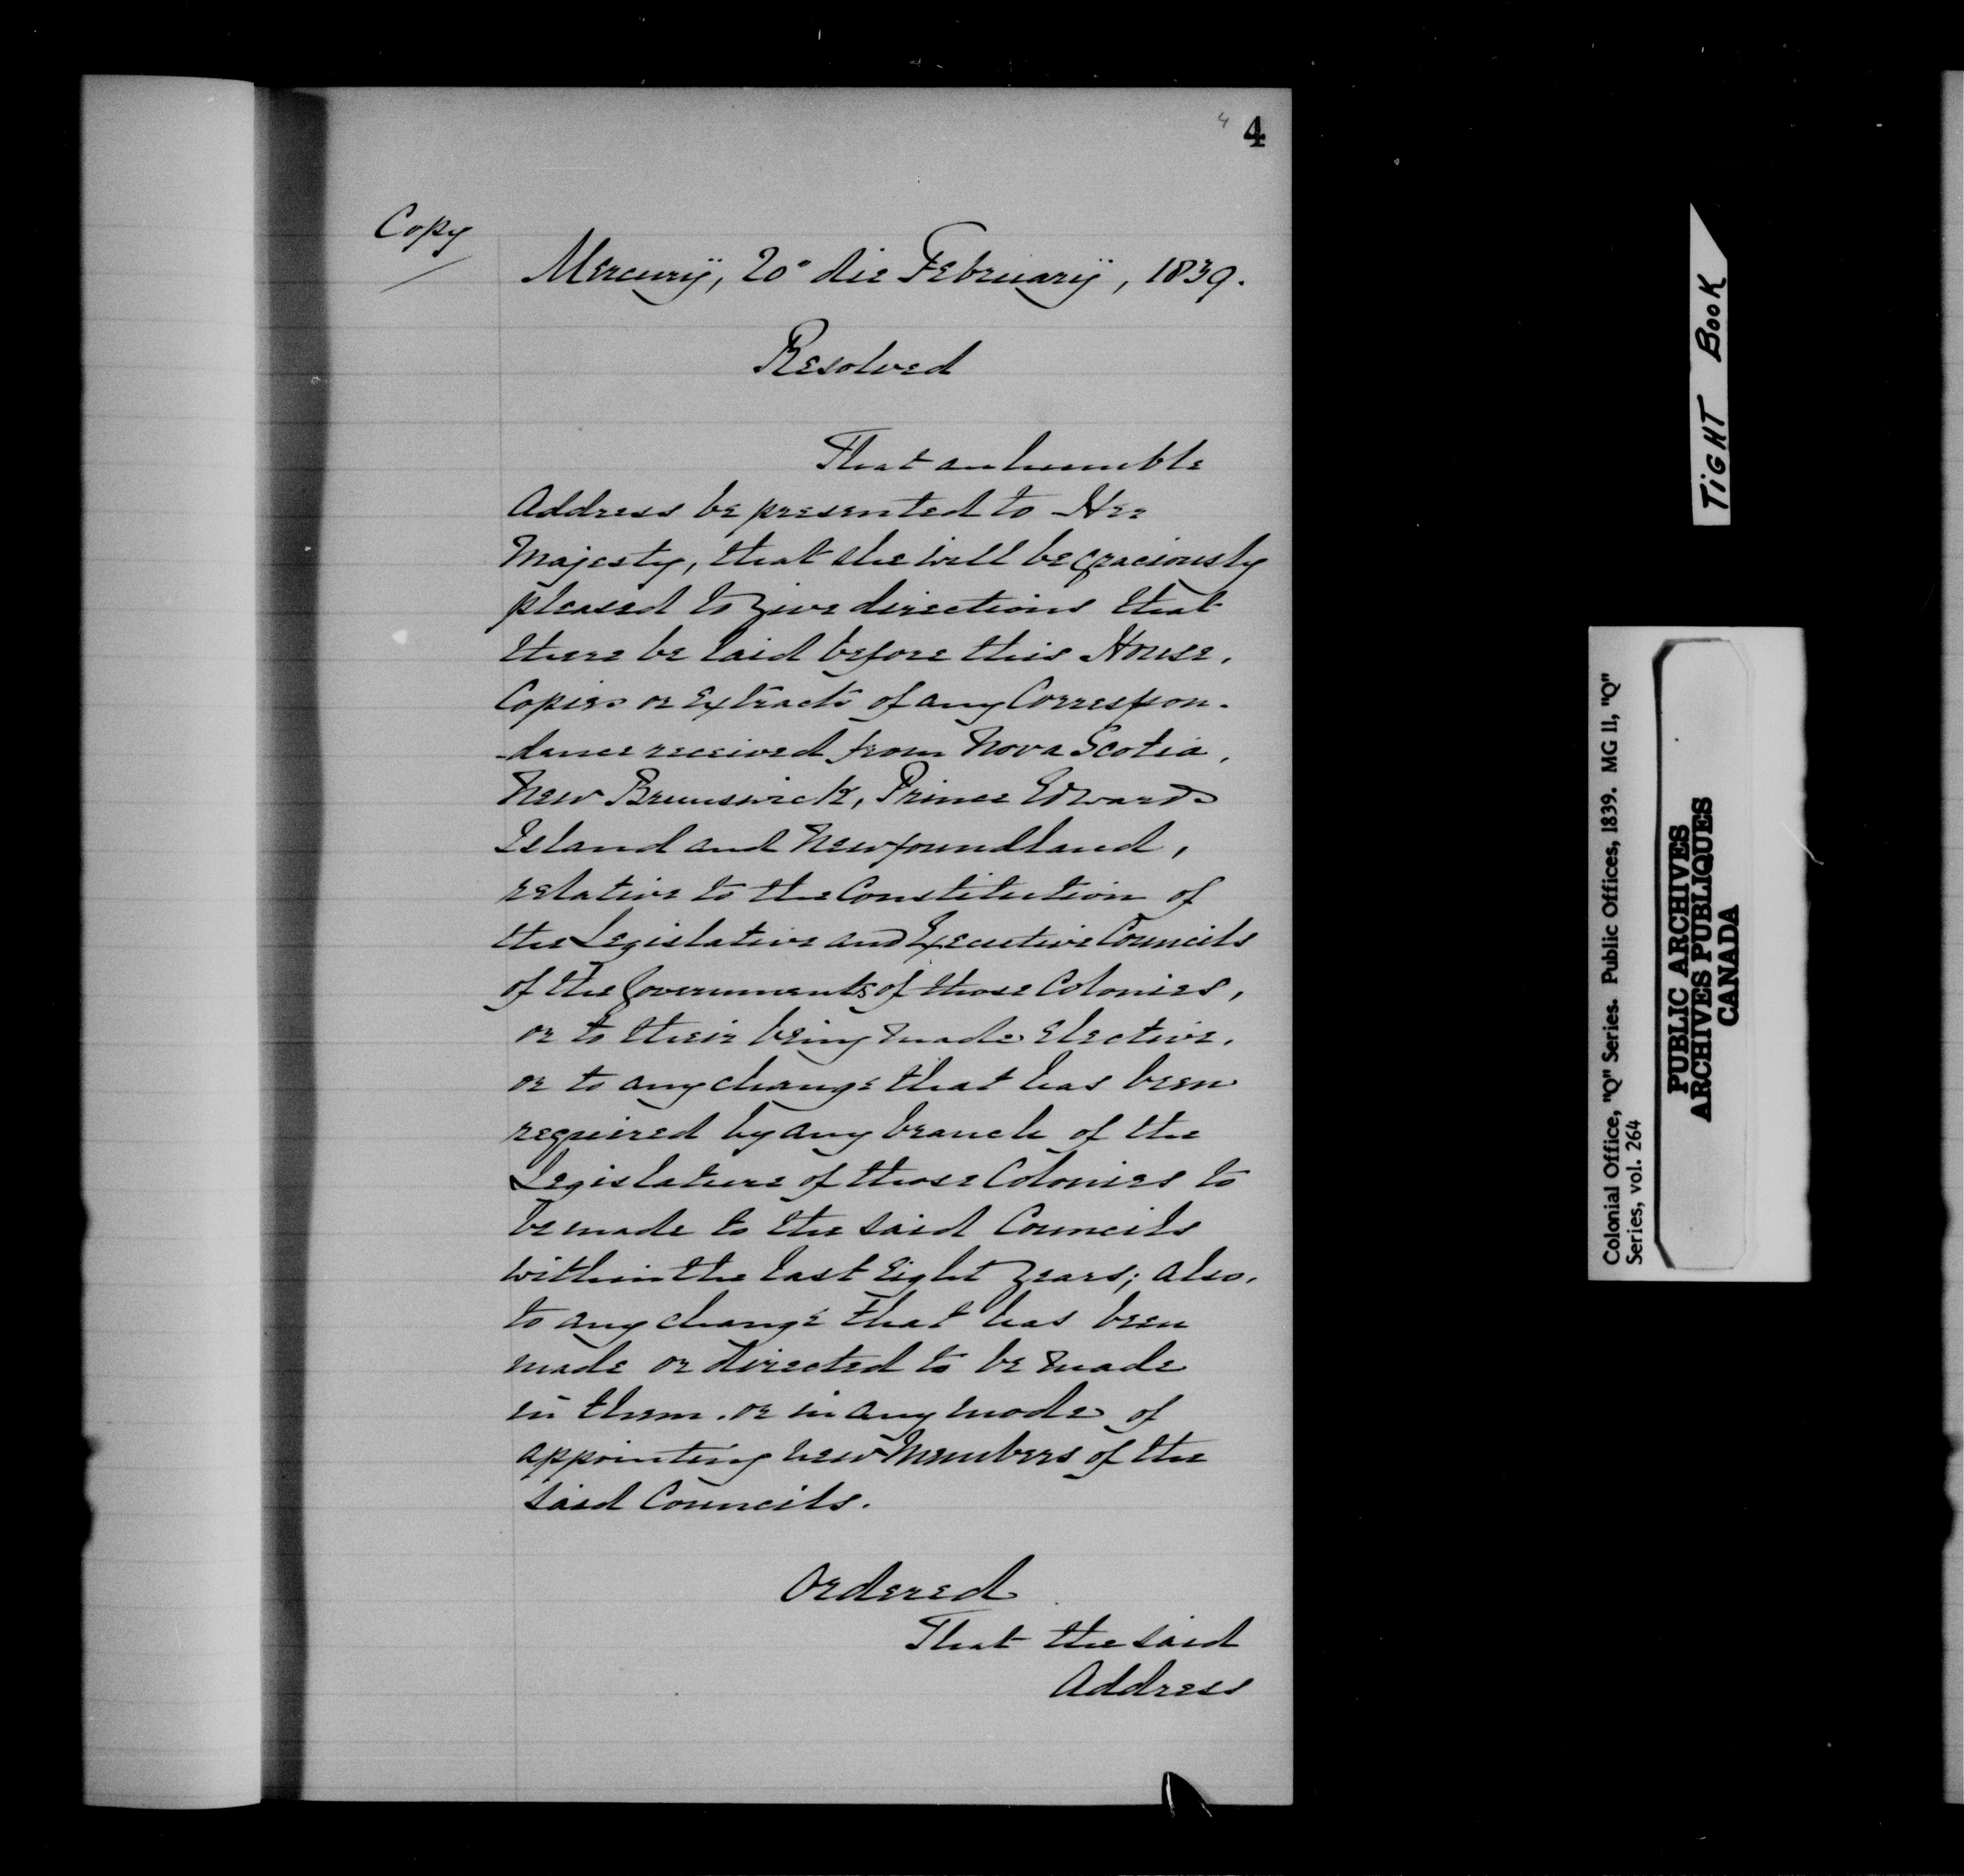 4 4
Copy
Mercurÿ, 20° die Februarÿ, 1839.
Resolved
That an humble
Address be presented to Her
Majesty, that she will be graciously
pleased to give directions that
there be laid before this House,
Copies or Extracts of any Correspon-
-dence received from Nova Scotia,
New Brunswick, Prince Edwards
Island and Newfoundland,
relative to the Constitution of
the Legislative and Executive Councils
of the Governments of those Colonies,
or to their being made Elective,
or to any change that has been
required by any branch of the
Legislature of those Colonies to
be made to the said Councils
within the last Eight Years; also,
to any change that has been
made or directed to be made
in them, or in any mode of
appointing new Members of the
said Councils.
Ordered
That the said
Address
TiGHT BooK
Colonial Office, "Q" Series. Public Offices, 1839. MG 11, "Q"
Series, vol. 264
PUBLIC ARCHIVES
ARCHIVES PUBLIQUES
CANADA